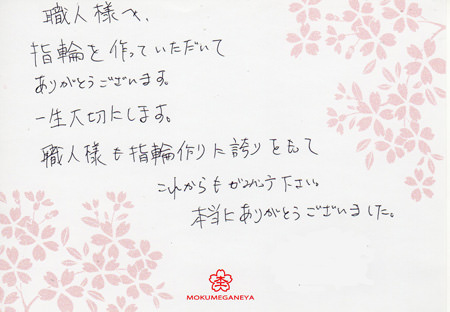 職人様へ、
指輪を作っていただいて
ありがとうございます。
一生大切にします。
職人様も指輪作りに誇りをもて
これからもがんばって下さい。
本当にありがとうございました。
MOKUMEGANEYA